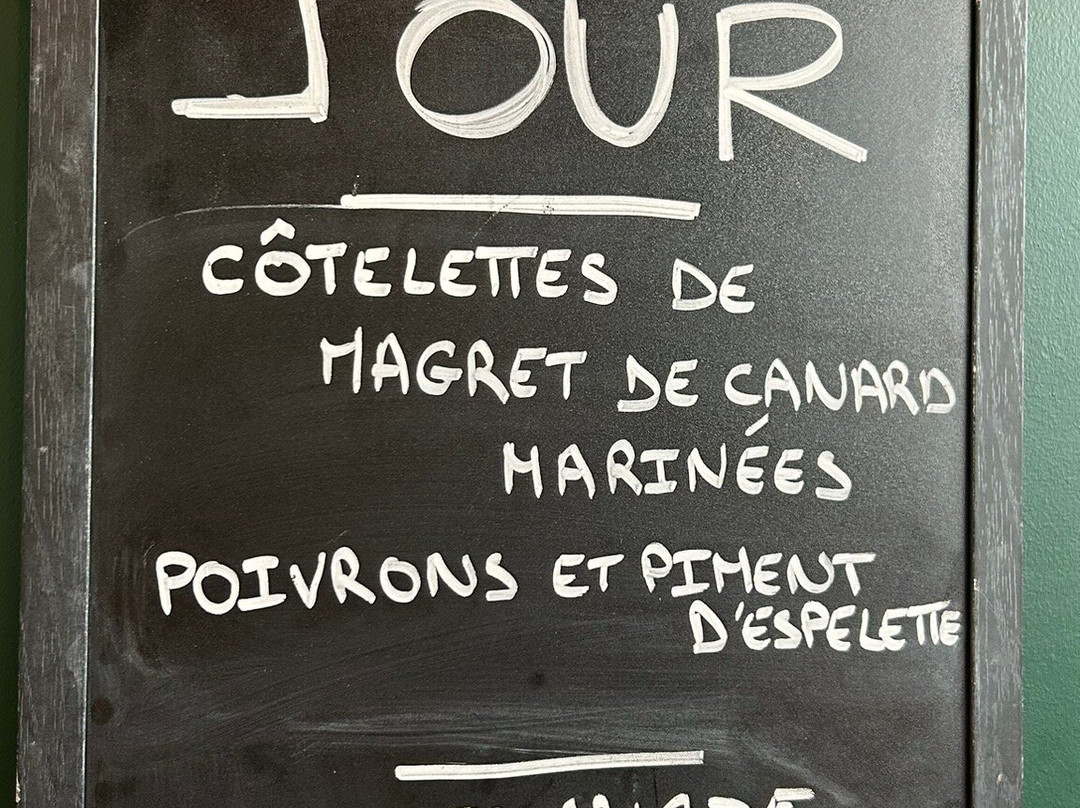 JOUR
CÔTELETTES DE
MAGRET DE CANARD
MARINÉES
POIVRONS ET PIMENT
D'ESPELETTE